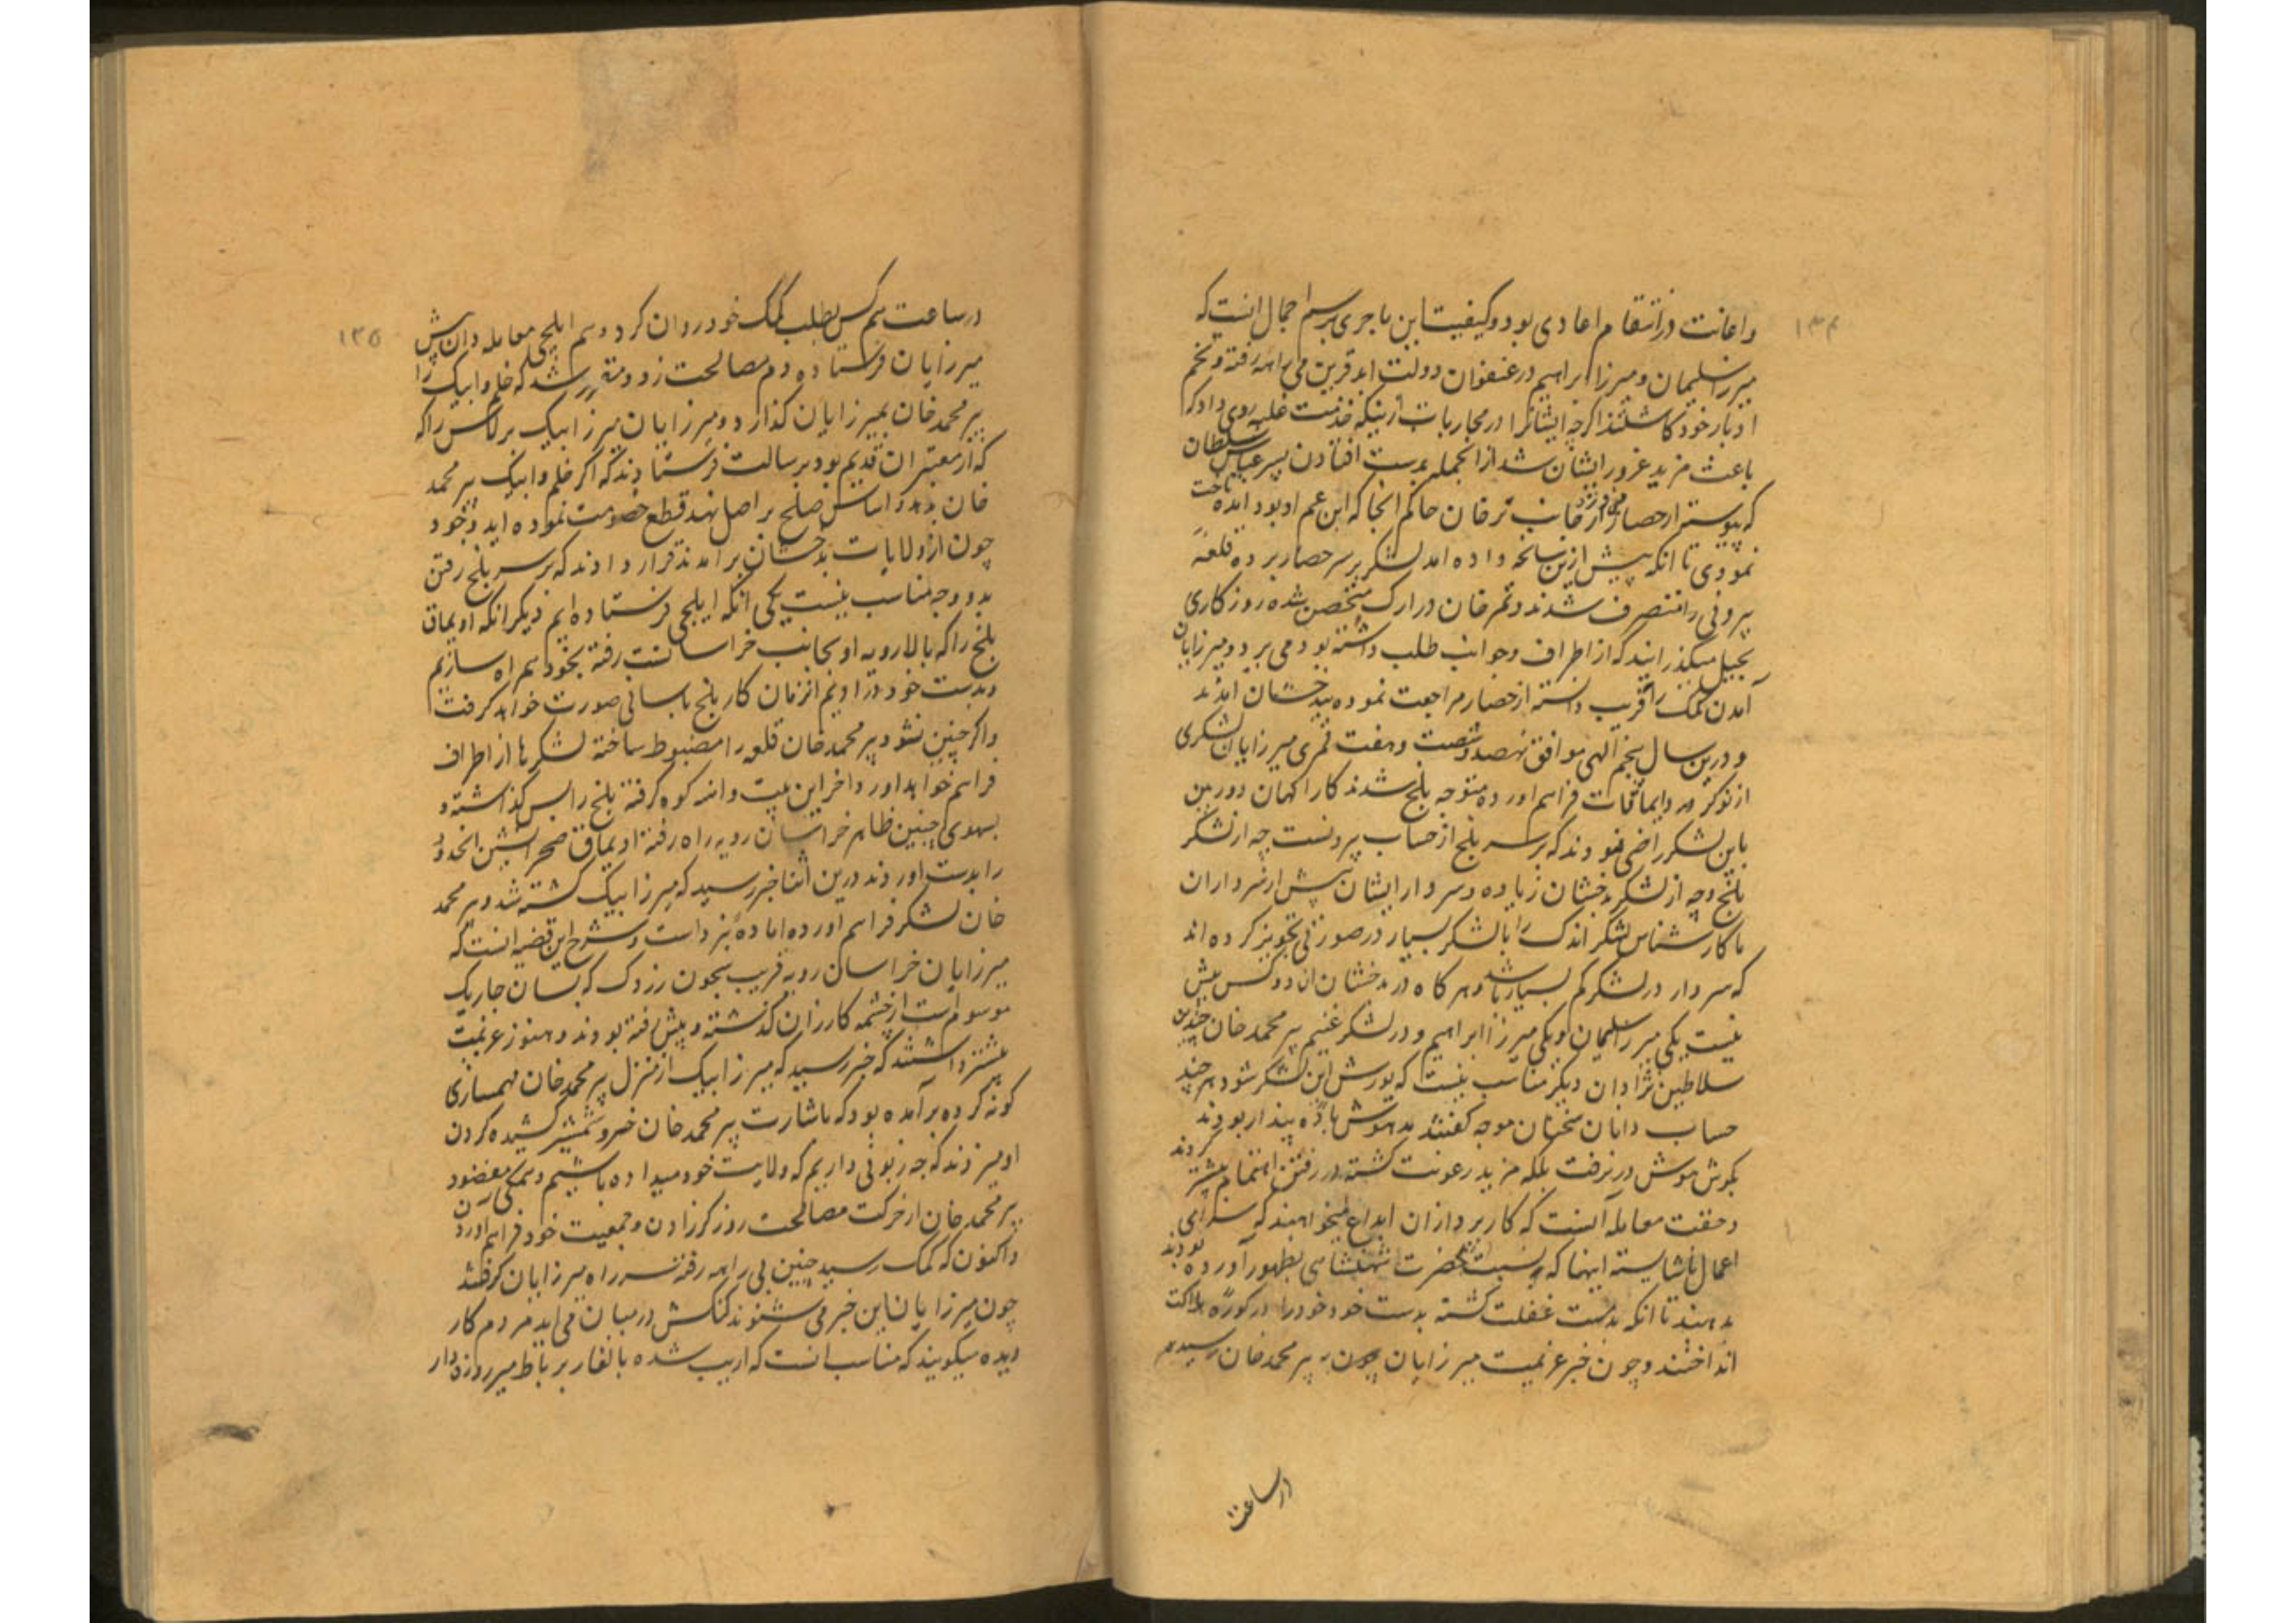 ۱۳۴
واعانت در انتقام اعادی بود و کیفیت این ماجری برسم اجمال انست که
میرزا سلیمان و میرزا ابراهیم در عنفوان دولت ابد قرین بی راهه رفته و تخم
ادبار خود کاشتند اگرچه ایشانرا در محاربات ازبیکه غلبه روی داد که
باعث مزید غرور ایشان شد از انجمله بدست افتادن پسر عباس سلطان
که پیوسته از حصار از جانب ترخان حاکم انجا که ابن عم او بود امده تاخت
نمودی تا انکه پیش ازین سانحه داده امد لشکر بر سر حصار برده قلعه
بیرونی را متصرف شدند و تمر خان در ارک متحصن شده روزکاری
بحیل میکذرانید که از اطراف و جوانب طلب داشته بود می برد و میرزایان
آمدن کمک را قریب دانسته از حصار مراجعت نموده ببدخشان امدند
و درین سال پنجم الهی موافق نهصد و شصت و هفت قمری میرزایان لشکری
از نوکر و ایماقات فراهم اورده متوجه بلخ شدند کار اکهان دوربین
باین لشکر راضی نبودند که بر سر بلخ از حساب بیرونست چه از لشکر
بلخ و چه از لشکر بدخشان زیاده و سردار ایشان بیش از سرداران
ما کارشناس لشکر اندک را با لشکر بسیار در صورتی تجویز کرده اند
که سردار در لشکر کم بسیار باشد و هر کاه در بدخشان از دو کس بیش
نیست یکی میرزا سلیمان و یکی میرزا ابراهیم و در لشکر غنیم پیر محمد خان چندین
سلاطین نژادان دیکر مناسب نیست که یورش این لشکر شود هر چند
حساب دانان سخنان موجه کفتند مدهوش باده پندار بودند
بکوش هوش در نرفت بلکه مزید رعونت کشته در رفتن اهتمام بیشتر کردند
و حقیقت معامله آنست که کارپردازان ابداع میخواهند که سزای
اعمال ناشایسته اینها که نسبت بحضرت شهنشاهی بظهور آورده بودند
بدهند تا انکه بدمست غفلت کشته بدست خود خود را در کوره هلاکت
انداختند و چون خبر عزیمت میرزایان چون به پیر محمد خان رسید هم
در ساعت
۱۳۵
در ساعت هم کس بطلب کمک خود روان کرد و هم ایلچی معامله دان پیش
میرزایان فرستاده دم مصالحت زد و مقرر شد که خلم و ایبک را
پیر محمد خان بمیرزایان کذارد و میرزایان میرزا بیک برلاس را که
که از معتبران قدیم بود برسالت فرستادند که اکر خلم و ایبک پیر محمد
خان بدهد و اساس صلح بر اصل نهد قطع خصومت نموده اید و خود
چون از ولایات بدخشان برامدند قرار دادند که بر سر بلخ رفتن
بدو وجه مناسب نیست یکی انکه ایلچی فرستاده ایم دیکر انکه اویماق
بلخ را که بالا رویه او بجانب خراسانست رفته بخود همراه سازیم
و بدست خود در اوریم انزمان کار بلخ باسانی صورت خواهد کرفت
و اکر چنین نشود پیر محمد خان قلعه را مضبوط ساخته لشکرها از اطراف
فراهم خواهد اورد و اخر این پشت و انه کوه کرفته بلخ را پس کذاشته و
بسوی چنین ظاهر خراسان رویه راه رفته اویماق صحرا نشین انحدود
را بدست اوردند درین اثنا خبر رسید که میرزا بیک کشته شد و پیر محمد
خان لشکر فراهم اورده اماده نبرد است و شرح این قضیه انست که
میرزایان خراسان رویه قریب بیجون رزدک که بسان چاریک
موسوم است از چشمه کازران کذشته و پیش رفته بودند و هنوز عزیمت
بیشتر داشتند که خبر رسید که میرزا بیک از منزل پیر محمد خان مهمسازی
کونه کرده برآمده بود که باشارت پیر محمد خان خسرو شمشیر کشیده کردن
او میزند که چه زبونی داریم که ولایت خود میداده باشیم و همکی مقصود
پیر محمد خان از حرکت مصالحت روز کذرانیدن و جمعیت خود فراهم اوردن
و اکنون که کمک رسید چنین بی راهه رفته سر راه میرزایان کرفتند
چون میرزایان این خبر می شنوند کنکش در میان می اید مردم کار
دیده میکویند که مناسب انست که اریب شده بالغار بر باط میر روزه دار